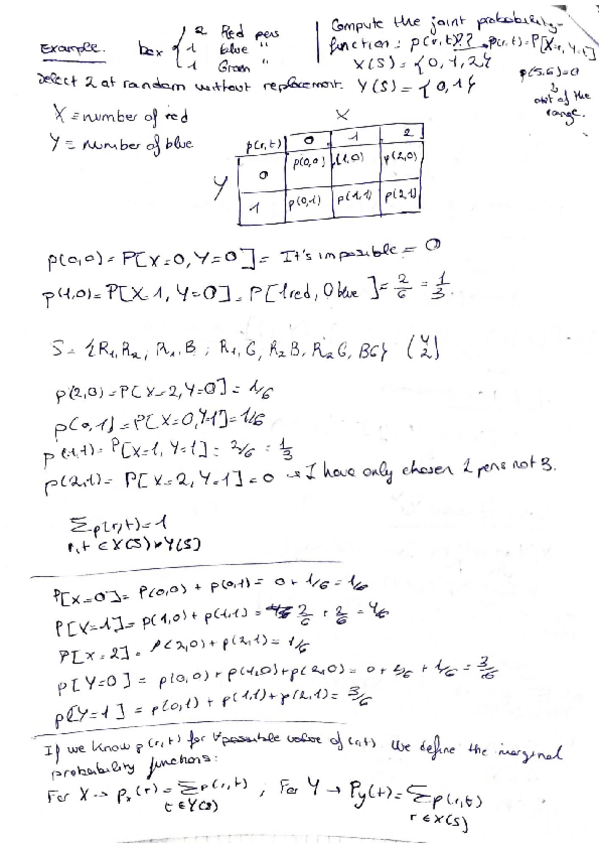 Example. box { 2 Red pens
1 blue "
1 Green "
Select 2 at random without replacement.
X = number of red
Y = number of blue
Compute the joint probability
function: p(r,t)?? → p(r,t)=P[X=r, Y=t]
X(S) = {0, 1, 2}
Y(S) = {0, 1}
p(5,6)=0
↓
out of the
range.
X
p(r,t) 0 1 2
Y 0 p(0,0) p(1,0) p(2,0)
1 p(0,1) p(1,1) p(2,1)
p(0,0) = P[X=0, Y=0] = It's impossible = 0
p(1,0) = P[X=1, Y=0] = P[1 red, 0 blue] = 2/6 = 1/3.
S = {R₁,R₂; R₁,B; R₁,G, R₂B, R₂G, BG} (4 2)
p(2,0) = P[X=2, Y=0] = 1/6
p(0,1) = P[X=0, Y=1] = 1/6
p(1,1) = P[X=1, Y=1] = 2/6 = 1/3
p(2,1) = P[X=2, Y=1] = 0 → I have only chosen 2 pens not 3.
Σp(r,t) = 1
r,t ∈ X(S)×Y(S)
P[X=0] = p(0,0) + p(0,1) = 0 + 1/6 = 1/6
P[X=1] = p(1,0) + p(1,1) = 2/6 + 2/6 = 4/6
P[X=2] = p(2,0) + p(2,1) = 1/6
p[Y=0] = p(0,0) + p(1,0) + p(2,0) = 0 + 2/6 + 1/6 = 3/6
p[Y=1] = p(0,1) + p(1,1) + p(2,1) = 3/6
If we know p(r,t) for ∀possible value of (r,t) we define the marginal
probability functions:
For X → pₓ(r) = Σp(r,t) ; For Y → Py(t) = Σp(r,t)
t ∈ Y(S) r ∈ X(S)